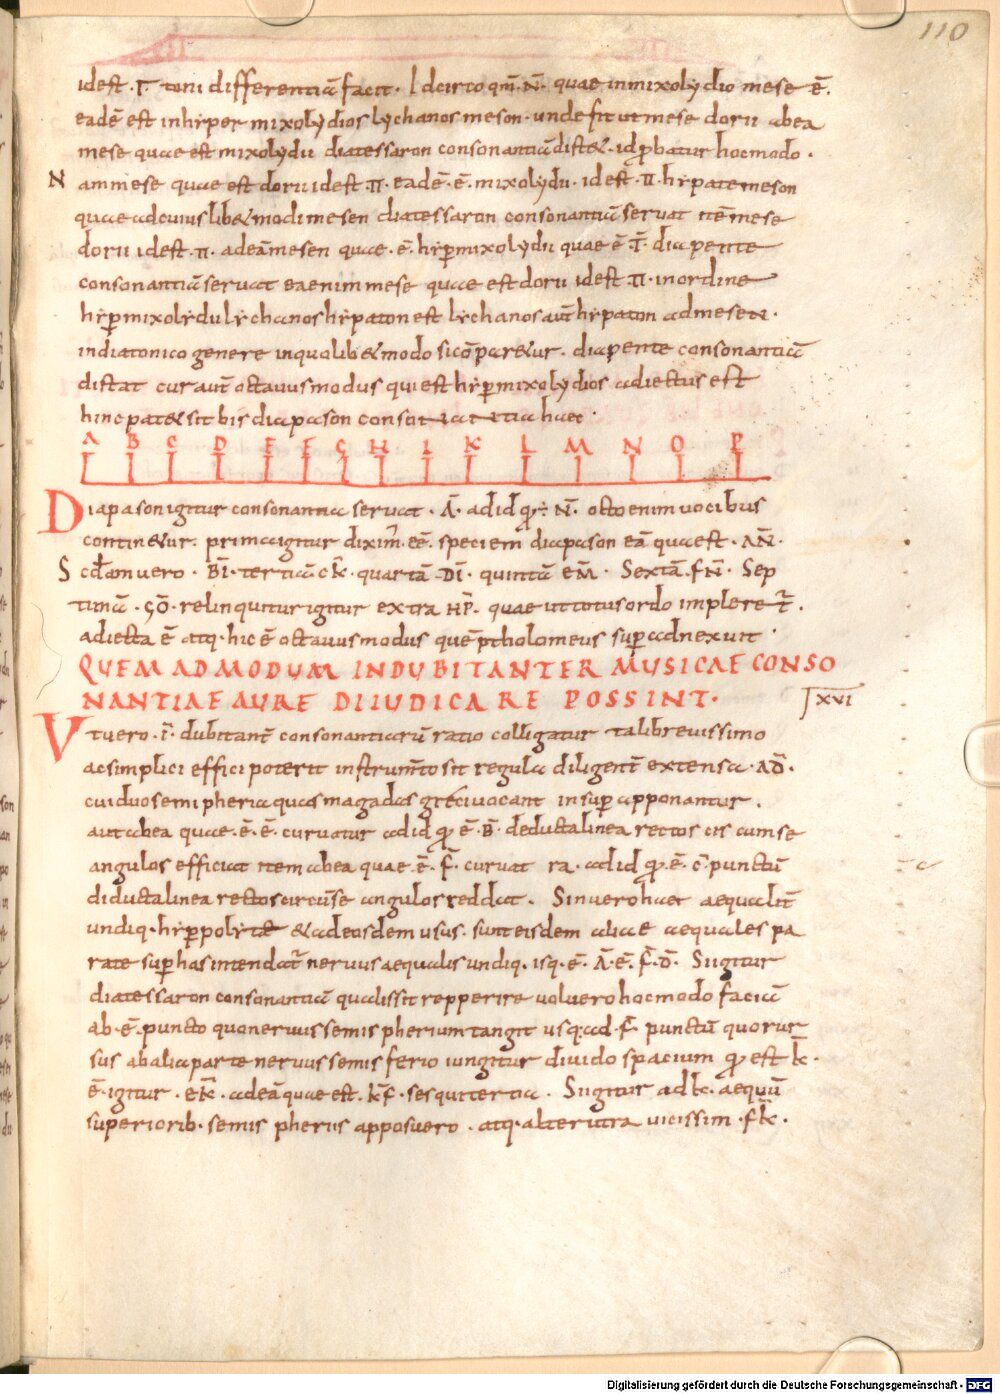 110
idest · Γ · toni differentiā facit · Idcirco qm̄ · N̄ · quae inmixolydio mese ē ·
eadē est inhyper mixolydios lychanos meson · unde fit ut mese dorii abea
mese quae est mixolydii diatessaron consonantiā distet · id pbatur hocmodo ·
N ammese quae est dorii idest · Π · eadē · ē · mixolydii · idest · Π · hypatemeson
quae adcuius libet modi mesen diatessaron consonantiā seruat itē mese
dorii idest · Π · adeā mesen quae · ē · hyp mixolydii quae ē · Γ · diapente
consonantiā seruat eaenim mese quae est dorii idest · Π · inordine
hyp mixolydii lychanos hypaton est lychanos aut̄ hypaton ad mesen ·
indiatonico genere inquolibet modo sicōparetur · diapente consonantiā
distat cur aut̄ octauus modus qui est hyp mixolydios adiectus est
hinc patet sit bis diapason consonantia haec ·
A B C D E F G H I K L M N O P
Diapason igitur consonantia seruat · Ā · ad id qd ē · N̄ · octo enim uocibus
continetur · prima igitur diximꝰ · eē · speciem diapason eā quae est · AN̄ ·
S cdam uero · BĪ · tertiā cK̄ · quartā DĪ · quintā EM̄ · Sextā FN̄ · Sep
timā · GŌ · relinquitur igitur extra HP̄ · quae ut totus ordo impleret ·
adiecta ē atq · hic ē octauus modus quē ptholomeus sup adnexuit ·
QUEMADMODUM INDUBITANTER MUSICAE CONSO
NANTIAE AURE DIIUDICARE POSSINT ·
XVI
V tuero · ī · dubitant̄ consonantiarū ratio colligatur tali breuissimo
ac simplici effici poterit instrumto sit regula diligent̄ extensa · AD̄ ·
cui duo semipheria quas magadas greci uocant insup apponantur ·
aut abea quae · ē · ē · curuatur ad id qd ē · B̄ · deducta linea rectos cis cum se
angulos efficiat item abea quae · ē · F̄ · curuat ra · ad id qd · ē · c̄ · punctū
diducta linea rectos circūse angulos reddat · Sin uero haec aequalit̄
undiq · hyp polytae & ad eosdem usus · sunt eisdem aliae aequales pa
rate sup has intendat̄ neruus aequalis undiq · isq · ē · Ā · Ē · F̄ · D̄ · Si igitur
diatessaron consonantiā qualis sit repperire uoluero hoc modo faciā
ab · ē · puncto quo neruus semispherium tangit usq; ad · F̄ · punctū quo rur
sus ab alia parte neruus semisferio iungitur diuido spacium qd est K̄ ·
ē · igitur · eK̄ · ad eā quae est · K̄F · sesquitertia · Si igitur ad K̄ · aequū
superiorib · semis pheriis apposuero · atq · alterutra uicissim · FK̄ ·
Digitalisierung gefördert durch die Deutsche Forschungsgemeinschaft - DFG